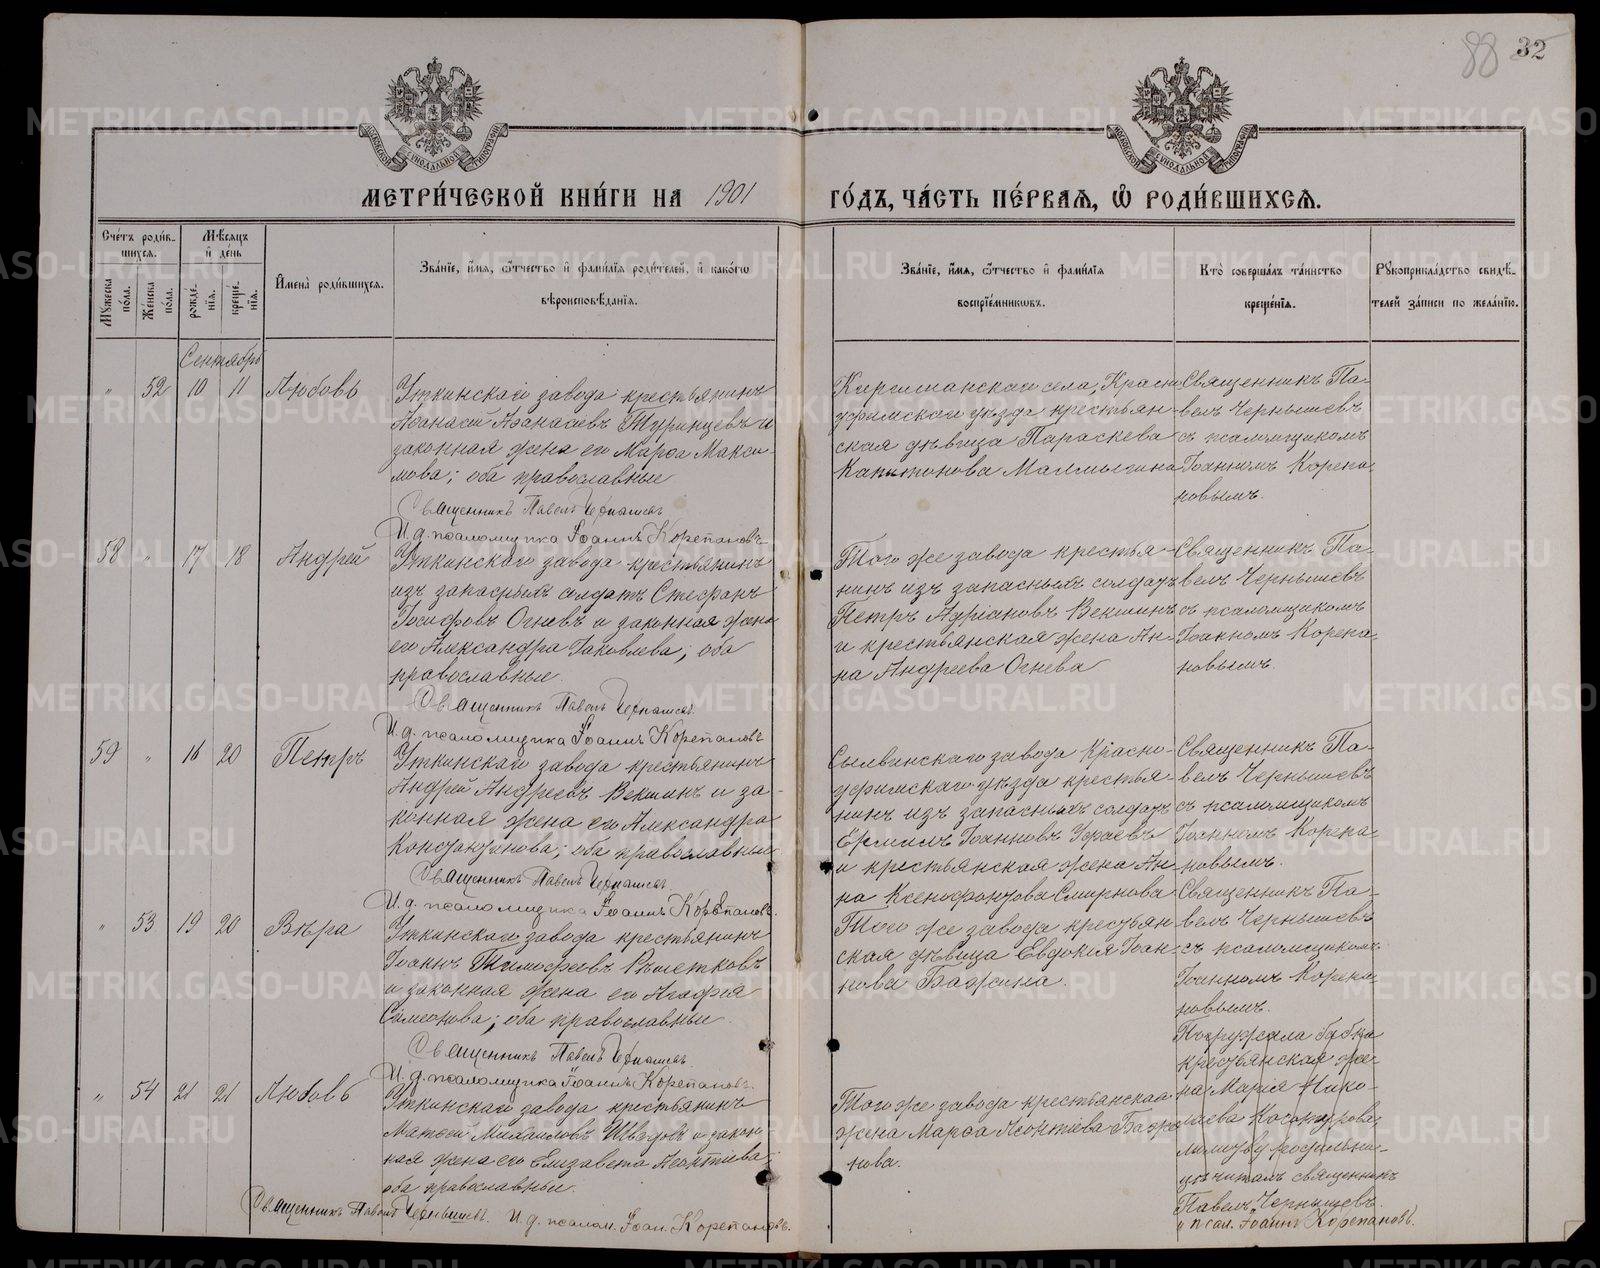 88 32
МЕТРИ́ЧЕСКОЙ КНИ́ГИ НА 1901 ГО́ДЪ, ЧА́СТЬ ПЕ́РВАѦ, Ѽ РОДИ́ВШИХСѦ.
Сче́тъ роди́в-
шихсѧ.
Мѣ́сѧцъ
и҆ де́нь
Мꙋ́жеска
по́ла.
Же́нска
по́ла.
рожде-
нїѧ.
креще-
нїѧ.
И҆мена̀ роди́вшихсѧ.
Зва́нїе, и҆́мѧ, ѻ҆́тчество и҆ фами́лїѧ роди́телей, и҆ како́гѡ
вѣроисповѣ́данїѧ.
Зва́нїе, и҆́мѧ, ѻ҆́тчество и҆ фами́лїѧ
воспрїе́мникѡвъ.
Кто̀ соверша́лъ та́инство
креще́нїѧ.
Рꙋкоприкла́дство свидѣ́-
телей за́писи по жела́нїю.
Сентябрь
" 52 10 11 Любовь
Уткинскаго завода крестьянинъ
Аѳанасій Аѳанасьевъ Туринцевъ и
законная жена его Марѳа Макси-
мова; оба православные
Священникъ Павелъ Чернышевъ
И. д. псаломщика Іоаннъ Корепановъ
Киргишанскаго села, Красно-
уфимскаго уѣзда крестьян-
ская дѣвица Параскева
Капитонова Малмыгина
Священникъ Па-
велъ Чернышевъ
съ псаломщикомъ
Іоанномъ Корепа-
новымъ.
58 " 17 18 Андрей
Уткинскаго завода крестьянинъ
изъ запасныхъ солдатъ Стефанъ
Іосифовъ Огневъ и законная жена
его Александра Іаковлева; оба
православные.
Священникъ Павелъ Чернышевъ
И. д. псаломщика Іоаннъ Корепановъ
Того же завода крестья-
нинъ изъ запасныхъ солдатъ
Петръ Адріановъ Векшинъ
и крестьянская жена Ан-
на Андреева Огнева
Священникъ Па-
велъ Чернышевъ
съ псаломщикомъ
Іоанномъ Корепа-
новымъ.
59 " 16 20 Петръ
Уткинскаго завода крестьянинъ
Андрей Андреевъ Векшинъ и за-
конная жена его Александра
Конфантинова; оба православные
Священникъ Павелъ Чернышевъ
И. д. псаломщика Іоаннъ Корепановъ.
Сылвинскаго завода Красно-
уфимскаго уѣзда крестья-
нинъ изъ запасныхъ солдатъ
Ермилъ Іоанновъ
и крестьянская жена Ан-
на Ксенофонтова Смирнова
Священникъ Па-
велъ Чернышевъ
съ псаломщикомъ
Іоанномъ Корепа-
новымъ.
" 53 19 20 Вѣра
Уткинскаго завода крестьянинъ
Іоаннъ Тимофеевъ Рѣшетковъ
и законная жена его Агафія
Симеонова; оба православные.
Священникъ Павелъ Чернышевъ
И. д. псаломщика Іоаннъ Корепановъ.
Того же завода крестьян
ская дѣвица Евдокія Іоан-
нова Бажина.
Священникъ Па-
велъ Чернышевъ
съ псаломщикомъ
Іоанномъ Корепа-
новымъ.
" 54 21 21 Любовь
Уткинскаго завода крестьянинъ
Матѳей Михаиловъ Шведовъ и закон-
ная жена его Елизавета Леонтіева;
оба православные.
Священникъ Павелъ Чернышевъ. И. д. псалом. Іоан. Корепановъ.
Того же завода крестьянская
жена Марѳа Леонтіева Бажи-
нова.
Погружала бабка
крестьянская же-
на Марія Нико-
лаева
молитву родильни-
цѣ читалъ священникъ
Павелъ Чернышевъ
и псал. Іоаннъ Корепановъ.
METRIKI.GASO-URAL.RU